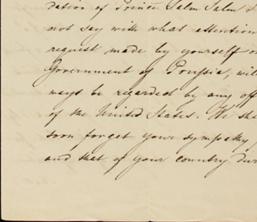 dation of Prince Salm Salm &
not say with what attention
request made by yourself o
Government of Prussia, wil
ways be regarded by any off
of the United States. We sha
soon forget your sympathy
and that of your country dur